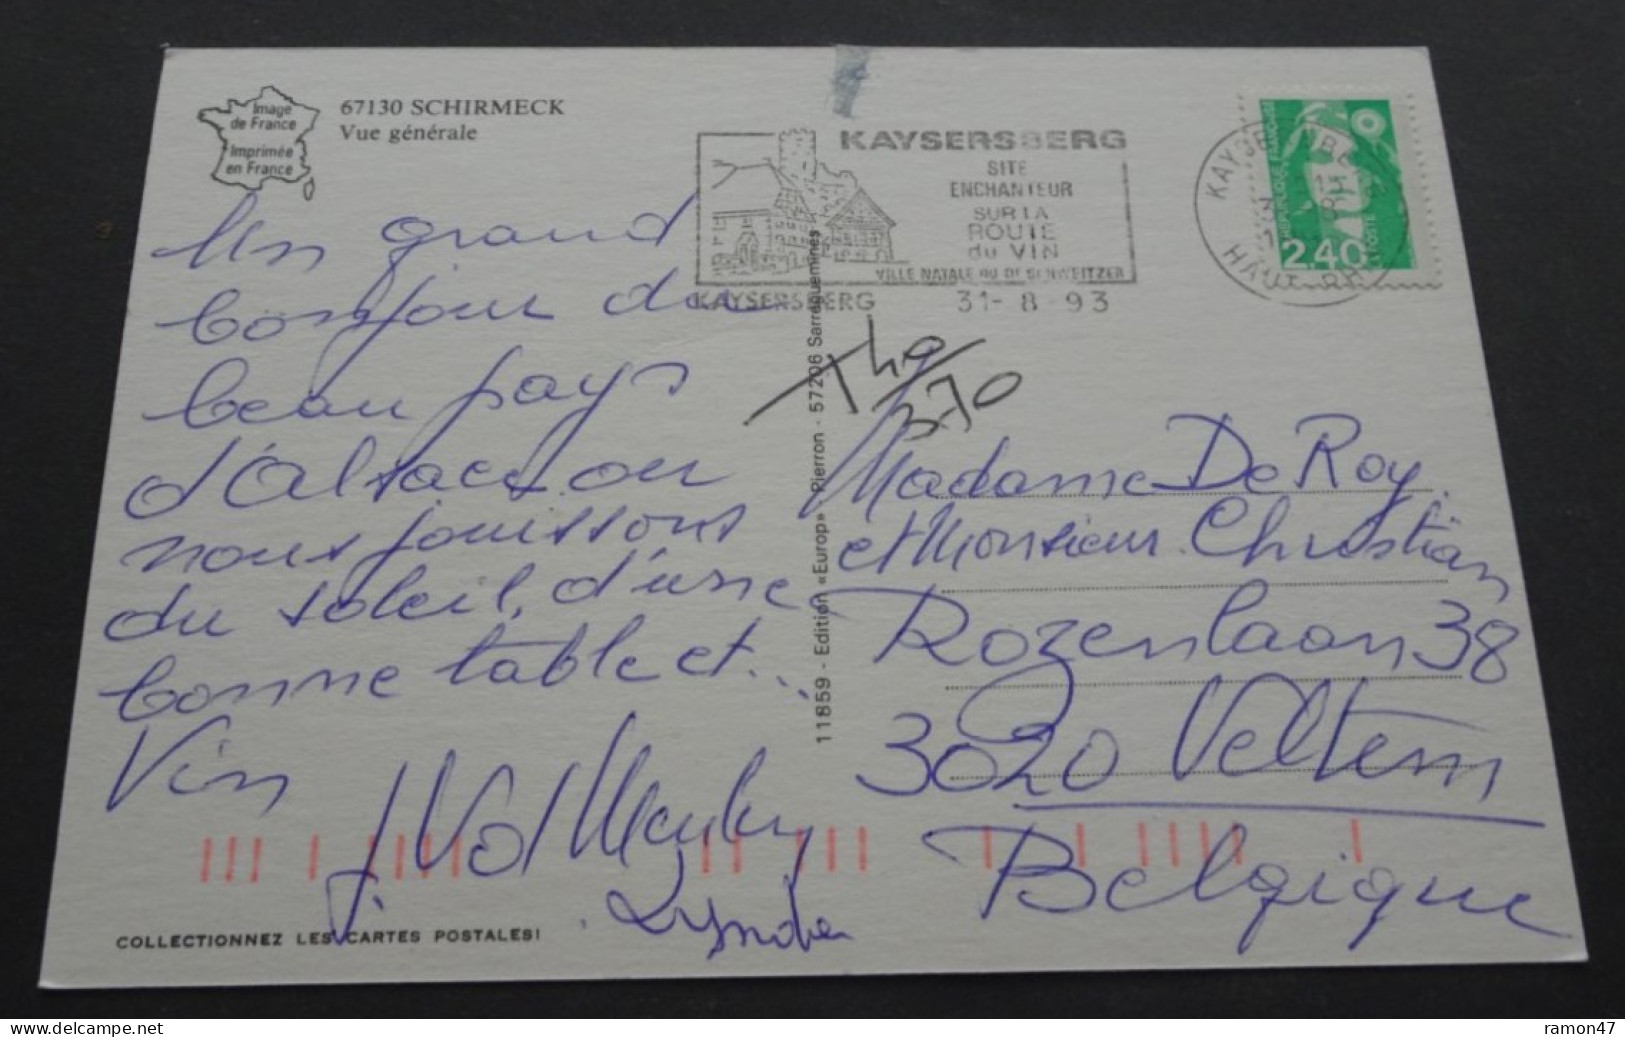 Image
de France
Imprimée
en France
67130 SCHIRMECK
Vue générale
KAYSERSBERG
SITE
ENCHANTEUR
SUR LA
ROUTE
du VIN
VILLE NATALE DU Dr SCHWEITZER
KAYSERSBERG
31- 8 -93
HAUT RHIN
REPUBLIQUE FRANÇAISE
2,40
LA POSTE
Un grand
bonjour du
beau pays
d'Alsace ou
nous jouissons
du soleil, d'une
bonne table et...
Vin
370
Madame De Roy
et Monsieur Christian
Rozenlaan 38
3020 Veltem
Belgique
11859 - Edition «Europ» Pierron - 57206 Sarreguemines
COLLECTIONNEZ LES CARTES POSTALES!
www.delcampe.net
ramon47